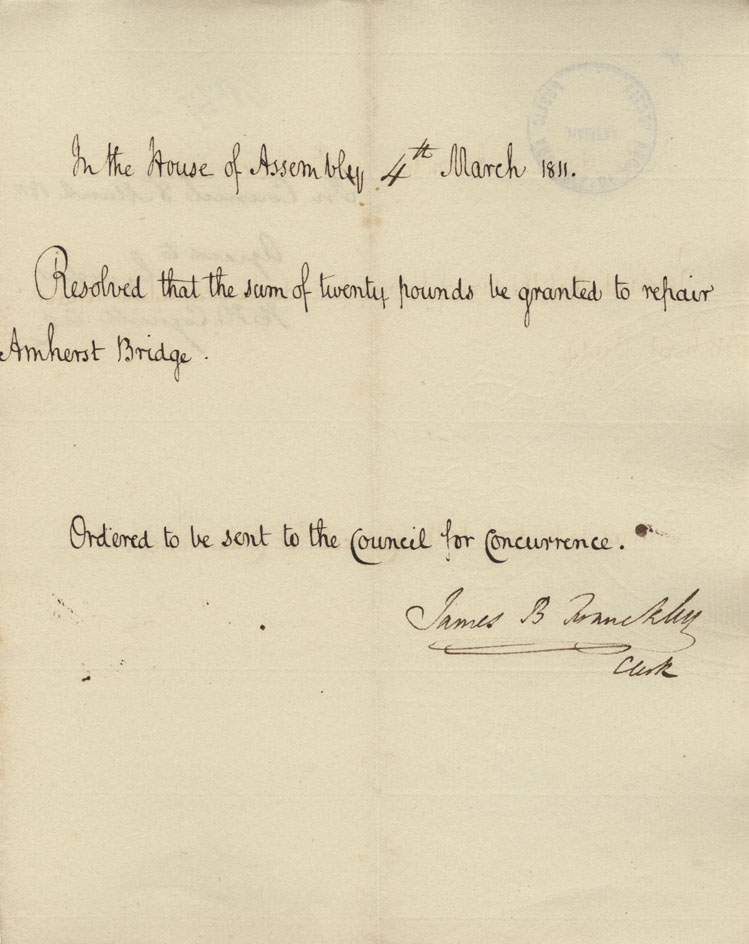 In the House of Assembly 4th March 1811.
Resolved that the sum of twenty pounds be granted to repair
Amherst Bridge.
Ordered to be sent to the Council for Concurrence.
James B Franckly
Clerk